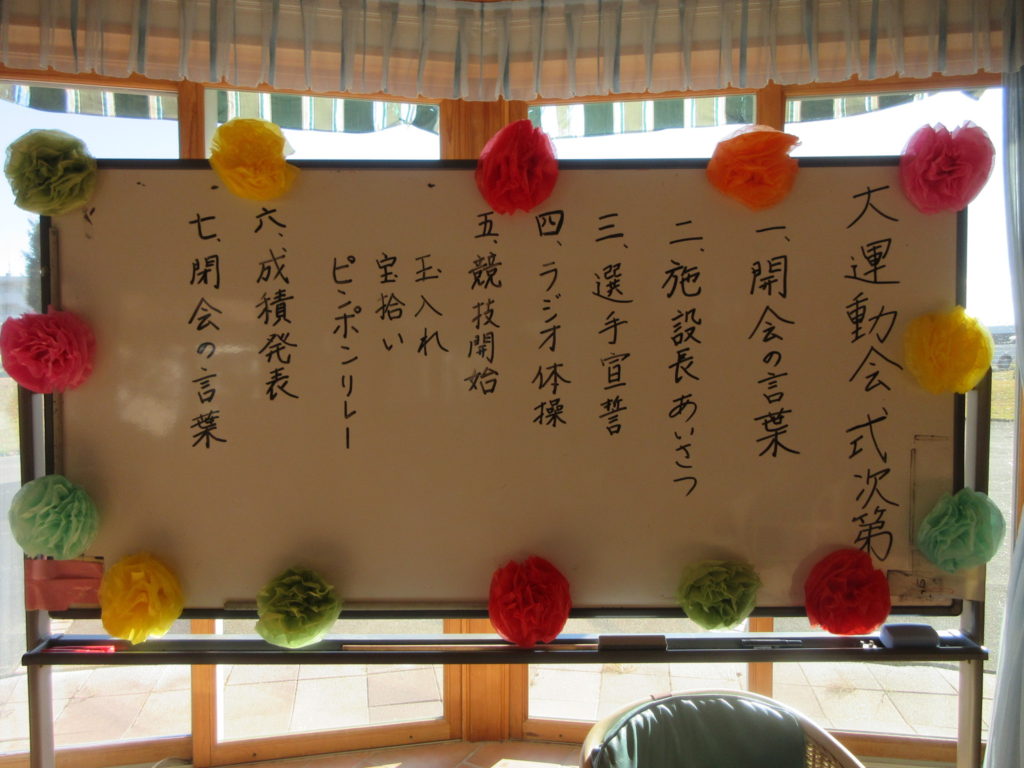 大運動会式次第
一、開会の言葉
二、施設長あいさつ
三、選手宣誓
四、ラジオ体操
五、競技開始
玉入れ
宝拾い
ピンポンリレー
六、成積発表
七、閉会の言葉